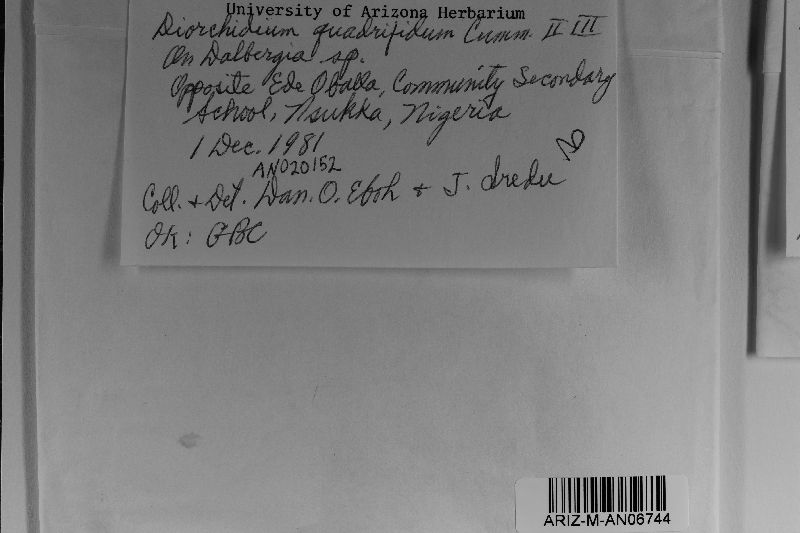 University of Arizona Herbarium
Diorchidium quadrifidum Cumm. II III
On Dalbergia sp.
Opposite Ede Oballa, Community Secondary
School, Nsukka, Nigeria
1 Dec. 1981
AN020152
Coll. + Det. Dan. O. Eboh + J.
OK: GBC
ARIZ-M-AN06744